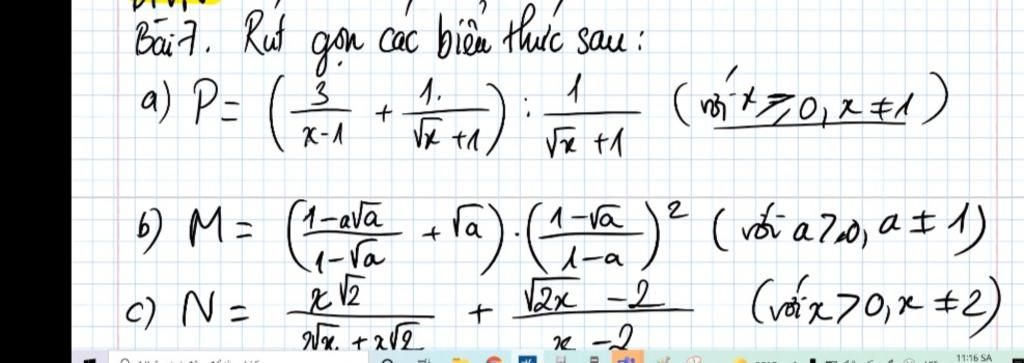 Bài 7. Rút gọn các biểu thức sau:
a) P = (3/(x-1) + 1/(√x+1)) : 1/(√x+1) (với x ≥ 0, x ≠ 1)
b) M = ((1-a√a)/(1-√a) + √a) · ((1-√a)/(1-a))² (với a ≥ 0, a ≠ 1)
c) N = x√2/(2√x + x√2) + (√2x - 2)/(x - 2) (với x > 0, x ≠ 2)
11:16 SA